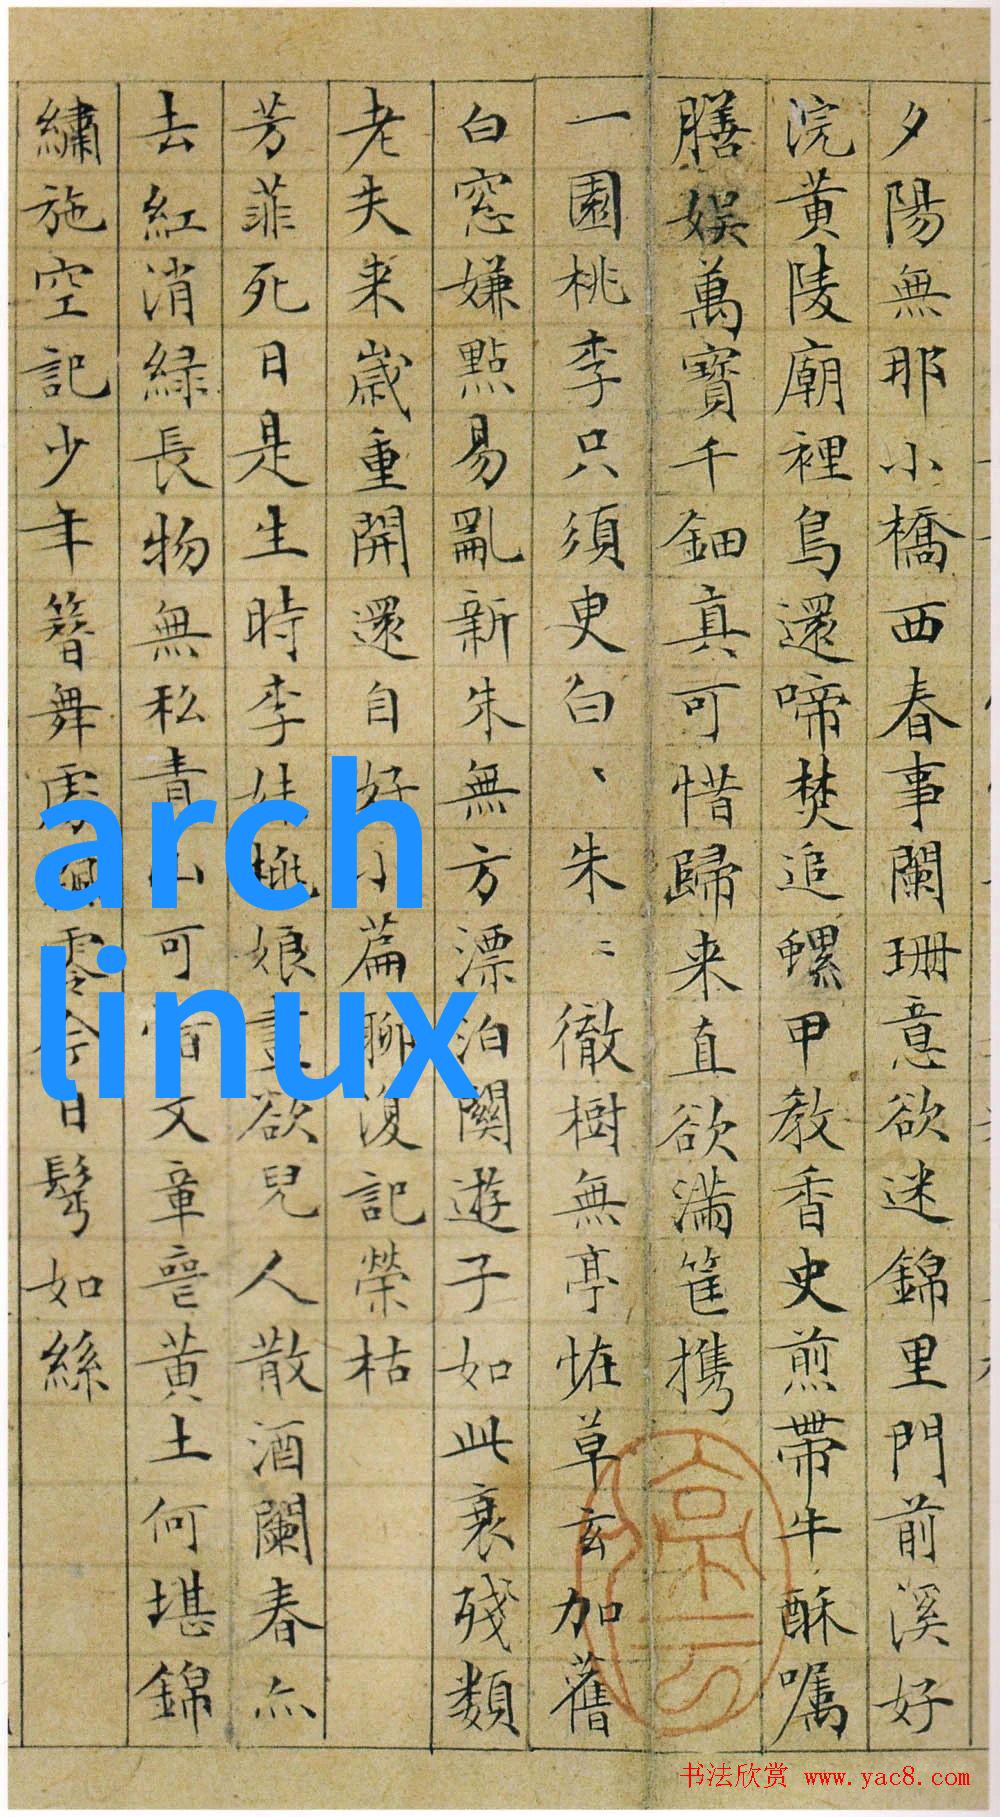 夕陽無那小橋西春事闌珊意欲迷錦里門前溪好
浣黄陵廟裡鳥還啼焚追螺甲教香史煎帶牛酥嘱
膳娱萬寳千鈿真可惜歸来直欲满筐攜
一園桃李只須臾白、朱〻徹樹無亭恠草玄加舊
白窓嫌點易亂新朱無方漂泊關遊子如此衰残類
老夫来歲重開還自好小篇聊復記榮枯
芳菲死日是生時李妹桃娘盡欲兒人散酒闌春亦
去紅消緑長物無私青山可惜文章
黄土何堪錦
繡施空記少年簪舞處零今日髩如絲
arch
linux
书法欣赏 www.yac8.com